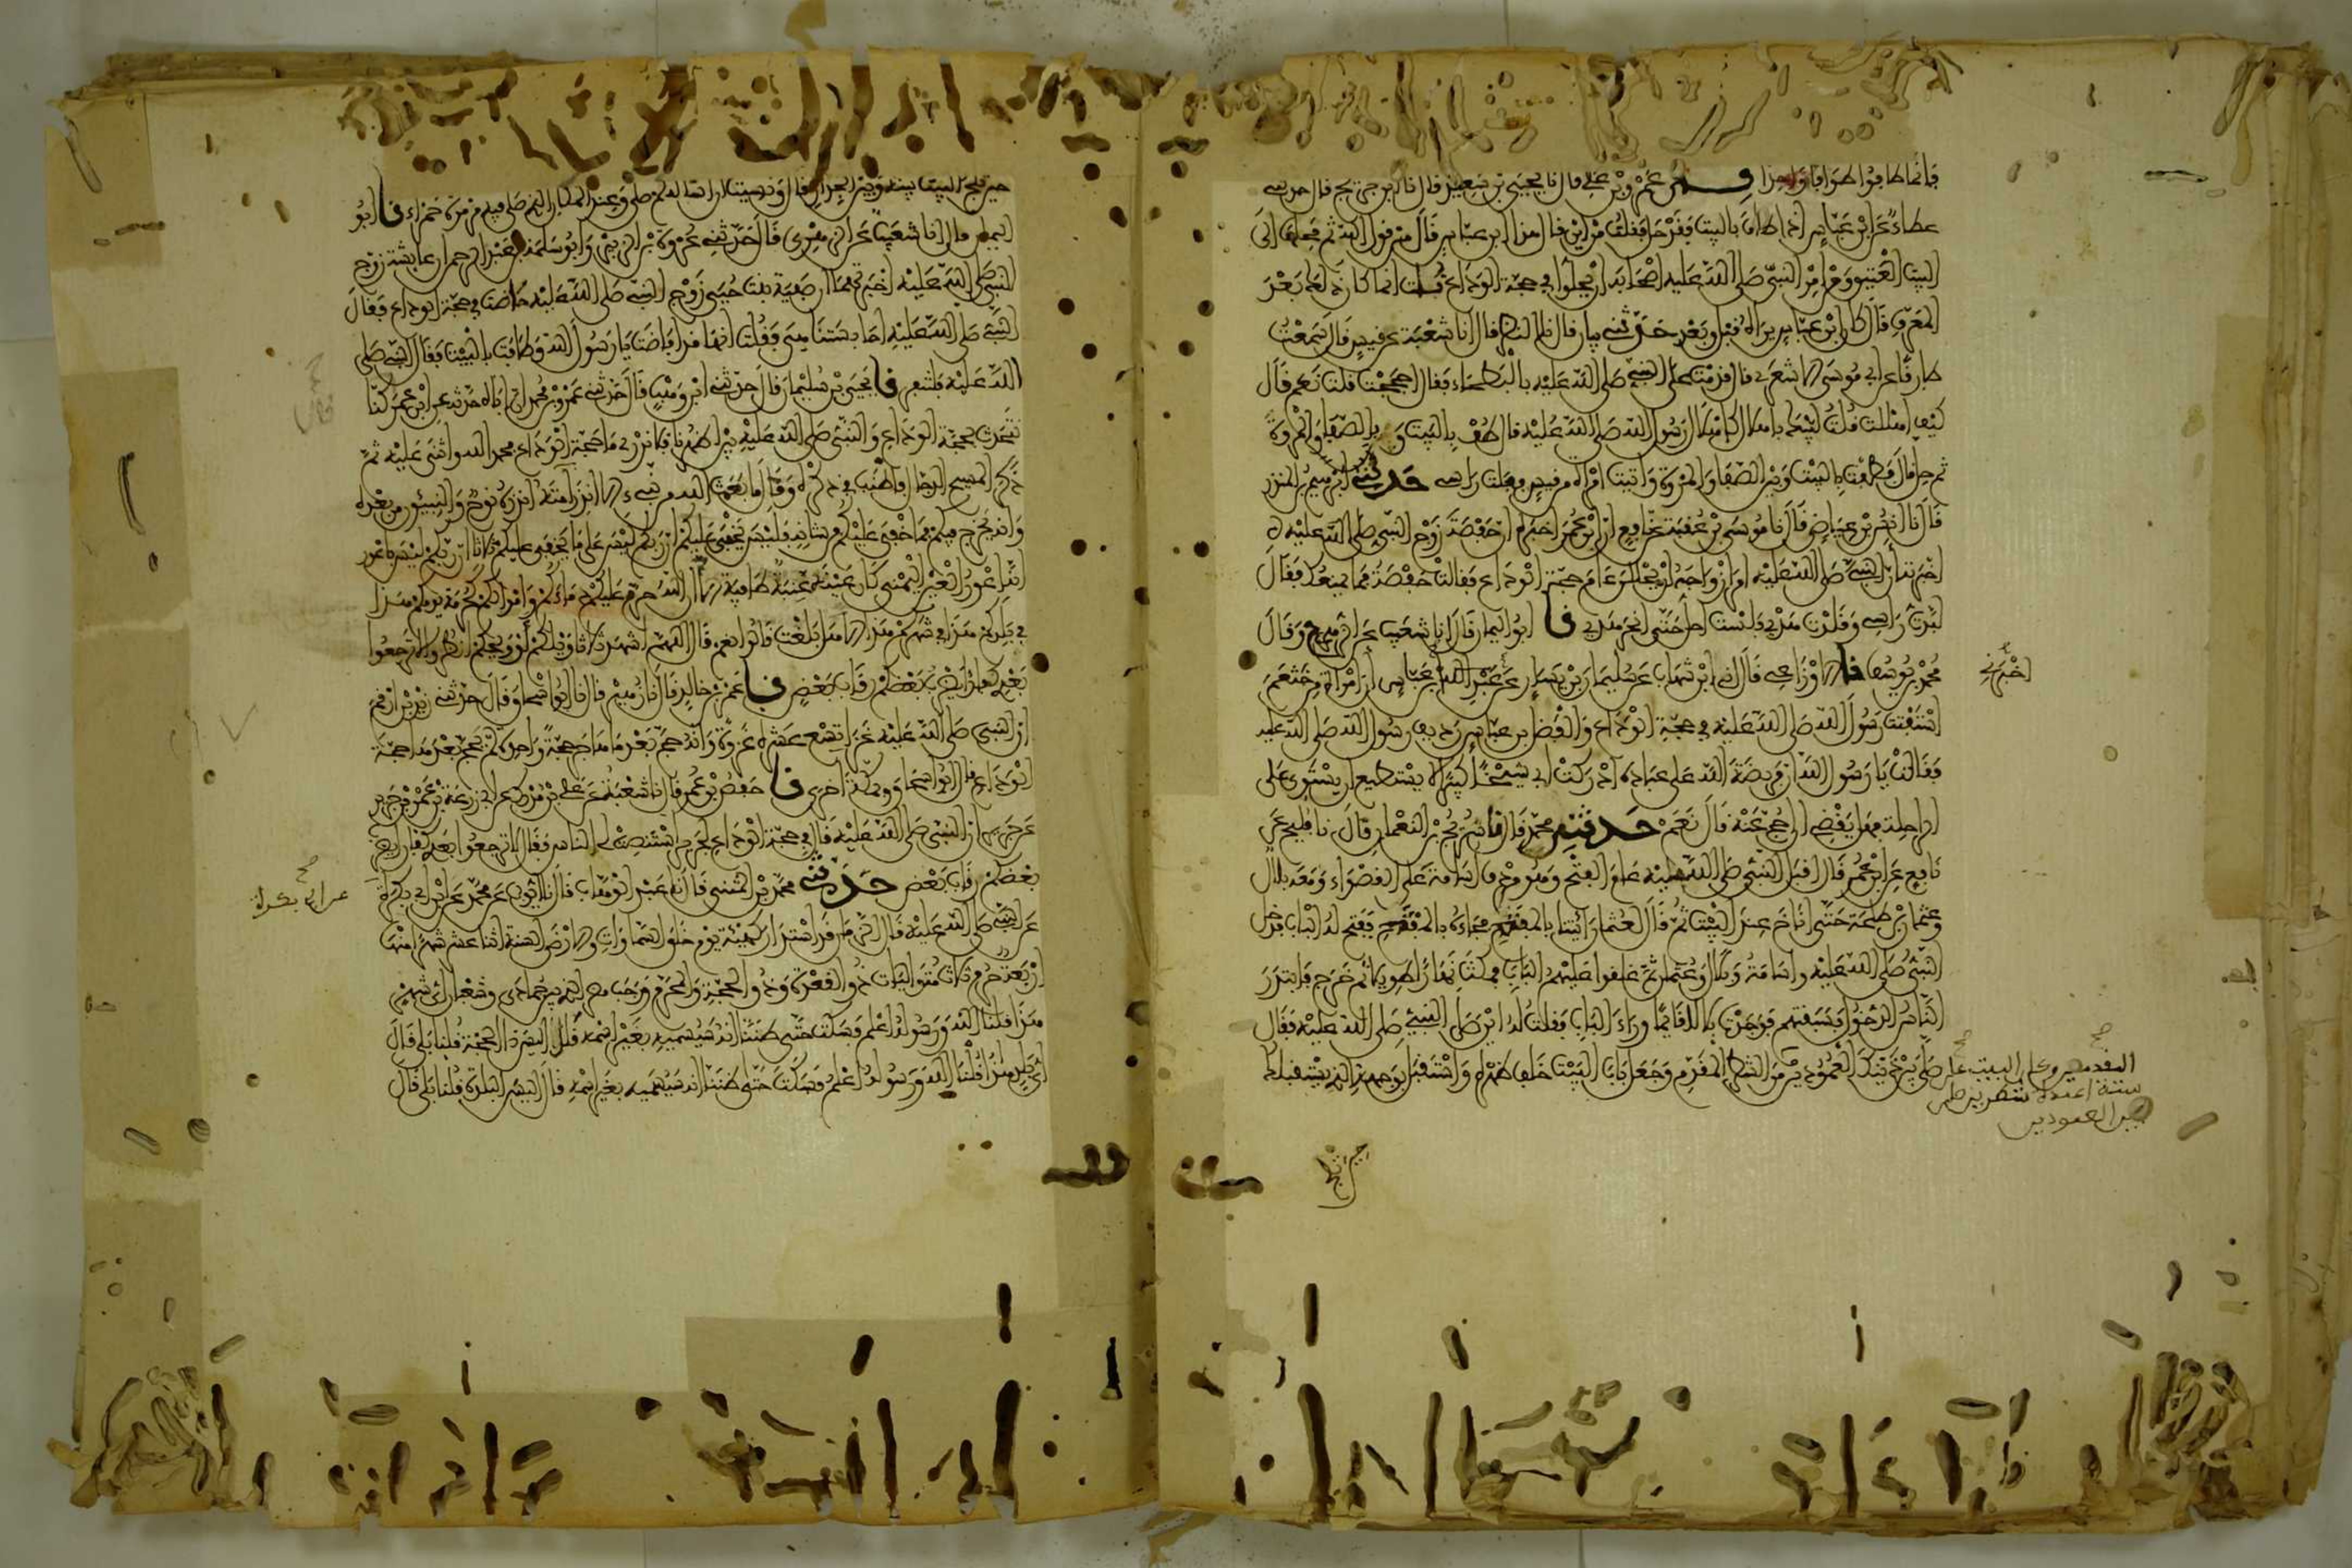 فإنما طافوا طوافا واحدا عمرو بن علي قال نا يحيى بن سعيد قال نا ابن جريج قال حدثني
عطاء عن ابن عباس إذا طاف بالبيت فقد حل فقلت من أين قال هذا ابن عباس قال من قول الله ثم محلها إلى
البيت العتيق ومن أمر النبي صلى الله عليه أصحابه أن يحلوا في حجة الوداع قلت إنما كان ذلك بعد
المعرف قال كان ابن عباس يراه قبل وبعد حدثني بيان قال نا النضر قال أنا شعبة عن قيس قال سمعت
طارقا عن أبي موسى الأشعري قال قدمت على النبي صلى الله عليه بالبطحاء فقال أحججت قلت نعم قال
كيف أهللت قلت لبيك بإهلال كإهلال رسول الله صلى الله عليه قال طف بالبيت وبالصفا والمروة
ثم حل قال فطفت بالبيت وبين الصفا والمروة وأتيت امرأة من قيس ففلت رأسي حدثني إبراهيم بن المنذر
قال أنا أنس بن عياض قال نا موسى بن عقبة عن نافع أن ابن عمر أخبره أن حفصة زوج النبي صلى الله عليه
أخبرته أن النبي صلى الله عليه أمر أزواجه أن يحللن عام حجة الوداع فقالت حفصة فما يمنعك فقال
لبدت رأسي وقلدت هديي فلست أحل حتى أنحر هديي نا أبو اليمان قال أنا شعيب عن الزهري ح وقال
محمد بن يوسف نا الأوزاعي قال أنا ابن شهاب عن سليمان بن يسار عن عبد الله بن عباس أن امرأة من خثعم
أخبرني
استفتت رسول الله صلى الله عليه في حجة الوداع والفضل بن عباس رديف رسول الله صلى الله عليه
فقالت يا رسول الله إن فريضة الله على عباده أدركت أبي شيخا كبيرا لا يستطيع أن يستوي على
الراحلة فهل يقضي أن أحج عنه قال نعم حدثني محمد قال نا سريج بن النعمان قال نا فليح عن
نافع عن ابن عمر قال أقبل النبي صلى الله عليه عام الفتح وهو مردف أسامة على القصواء ومعه بلال
وعثمان بن طلحة حتى أناخ عند البيت ثم قال لعثمان ائتنا بالمفتح فجاءه بالمفتح ففتح له الباب فدخل
النبي صلى الله عليه وأسامة وبلال وعثمان ثم غلقوا عليهم الباب فمكث نهارا طويلا ثم خرج فابتدر
الناس الدخول فسبقتهم فوجدت بلالا قائما وراء الباب فقلت له أين صلى النبي صلى الله عليه فقال
صلى بين ذينك العمودين من السطر المقدم وجعل باب البيت خلف ظهره واستقبل بوجهه الذي يستقبلك
المقدمين وكان البيت على
ستة أعمدة سطرين صلى
بين العمودين
حين تلج البيت بينه وبين الجدار قال ونسيت أن أسأله كم صلى وعند المكان الذي صلى فيه مرمرة حمراء نا أبو
اليمان قال أنا شعيب عن الزهري قال حدثني عروة بن الزبير وأبو سلمة بن عبد الرحمن أن عائشة زوج
النبي صلى الله عليه أخبرتهما أن صفية بنت حيي زوج النبي صلى الله عليه حاضت في حجة الوداع فقال
النبي صلى الله عليه أحابستنا هي فقلت إنها قد أفاضت يا رسول الله وطافت بالبيت فقال النبي صلى
الله عليه فلتنفر نا يحيى بن سليمان قال حدثني ابن وهب قال حدثني عمر بن محمد أن أباه حدثه عن ابن عمر كنا
نتحدث بحجة الوداع والنبي صلى الله عليه بين أظهرنا فلا ندري ما حجة الوداع فحمد الله وأثنى عليه ثم
ذكر المسيح الدجال فأطنب في ذكره وقال ما بعث الله من نبي إلا أنذر أمته أنذره نوح والنبيون من بعده
وإنه يخرج فيكم فما خفي عليكم من شأنه فليس يخفى عليكم إن ربكم ليس على ما يخفى عليكم ثلاثا إن ربكم ليس بأعور
إنه أعور العين اليمنى كأن عينه عنبة طافية ألا إن الله حرم عليكم دماءكم وأموالكم كحرمة يومكم هذا
في بلدكم هذا في شهركم هذا ألا هل بلغت قالوا نعم قال اللهم اشهد ثلاثا ويلكم أو ويحكم انظروا لا ترجعوا
بعدي كفارا يضرب بعضكم رقاب بعض نا عمرو بن خالد قال نا زهير قال نا أبو إسحاق قال حدثني زيد بن أرقم
أن النبي صلى الله عليه غزا تسع عشرة غزوة وأنه حج بعد ما هاجر حجة واحدة لم يحج بعدها حجة
الوداع قال أبو إسحاق وبمكة أخرى نا حفص بن عمر قال نا شعبة عن علي بن مدرك عن أبي زرعة بن عمرو بن جرير
عن جرير أن النبي صلى الله عليه قال في حجة الوداع لجرير استنصت الناس فقال لا ترجعوا بعدي كفارا يضرب
بعضكم رقاب بعض حدثني محمد بن المثنى قال نا عبد الوهاب قال نا أيوب عن محمد عن ابن أبي بكرة
عن أبي بكرة
عن النبي صلى الله عليه قال الزمان قد استدار كهيئة يوم خلق السماوات والأرض السنة اثنا عشر شهرا منها
أربعة حرم ثلاث متواليات ذو القعدة وذو الحجة والمحرم ورجب مضر الذي بين جمادى وشعبان أي شهر
هذا قلنا الله ورسوله أعلم فسكت حتى ظننا أنه سيسميه بغير اسمه قال أليس ذا الحجة قلنا بلى قال
أي بلد هذا قلنا الله ورسوله أعلم فسكت حتى ظننا أنه سيسميه بغير اسمه قال أليس البلدة قلنا بلى قال